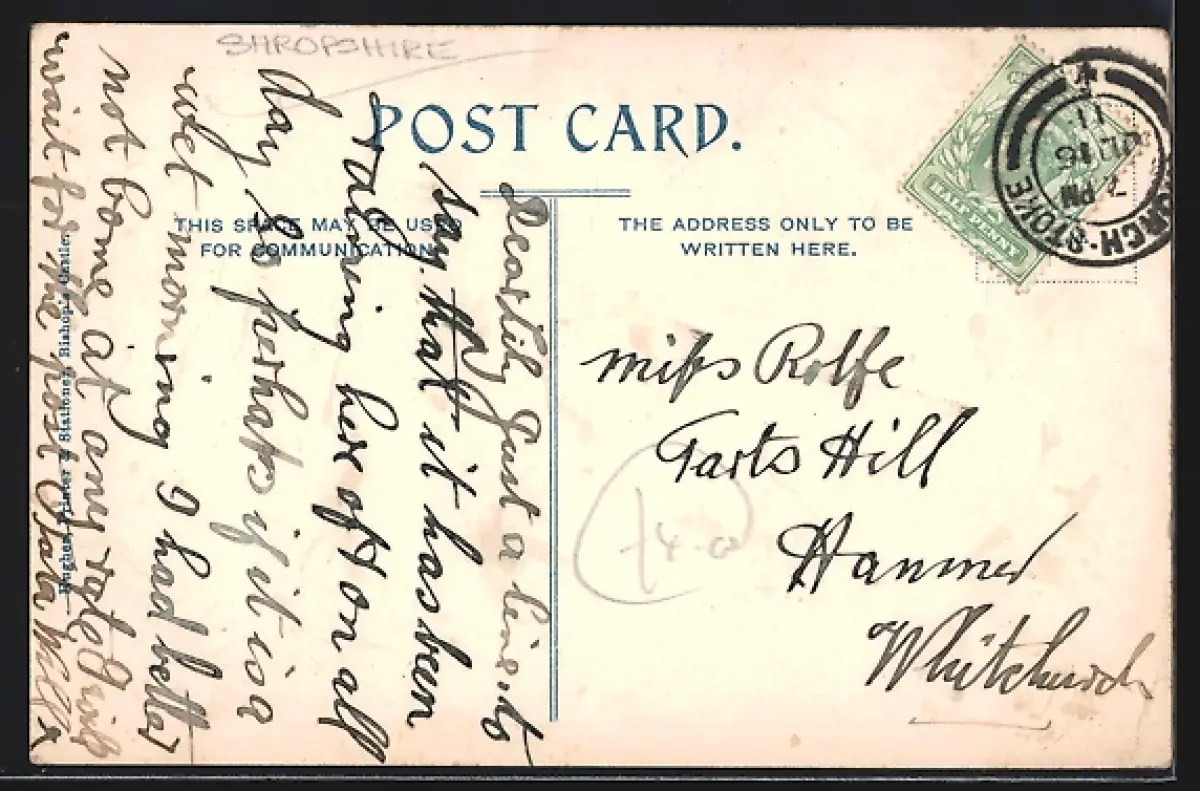 SHROPSHIRE
POST CARD.
THIS SPACE MAY BE USED
FOR COMMUNICATION.
THE ADDRESS ONLY TO BE
WRITTEN HERE.
HALF PENNY
CHURCH-STOKE
7 PM
JU 16
11
Miss Rolfe
Tarts Hill
Hanmer
Whitchurch
Dear Lily Just a line to
say that it has been
raining here off & on all
day so perhaps if it is a
wet morning I had better
not come at any rate I will
wait for the post
Hughes, Printer & Stationer, Bishop's Castle.